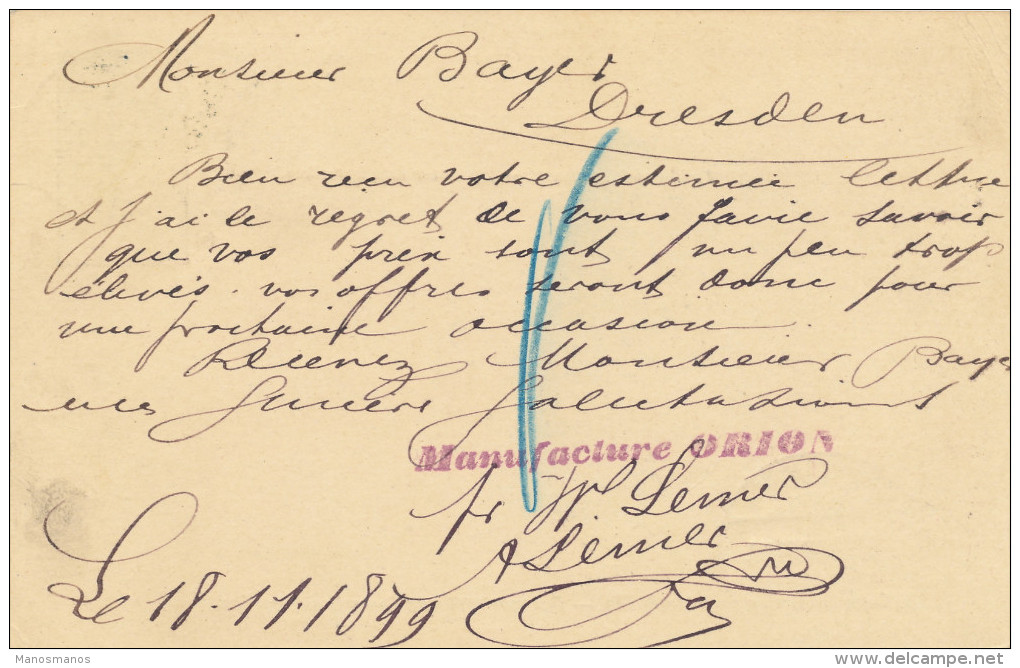 Monsieur Bayer
Dresden
Bien reçu votre estimée lettre
et j'ai le regret de vous faire savoir
que vos prix sont un peu trop
élevés. vos offres seront donc pour
une prochaine occasion.
Recevez Monsieur Bayer
mes sincère salutations
Manufacture ORION
pr Lemer
A Lemer
Le 18.11.1899
Manosmanos
delcampe.net